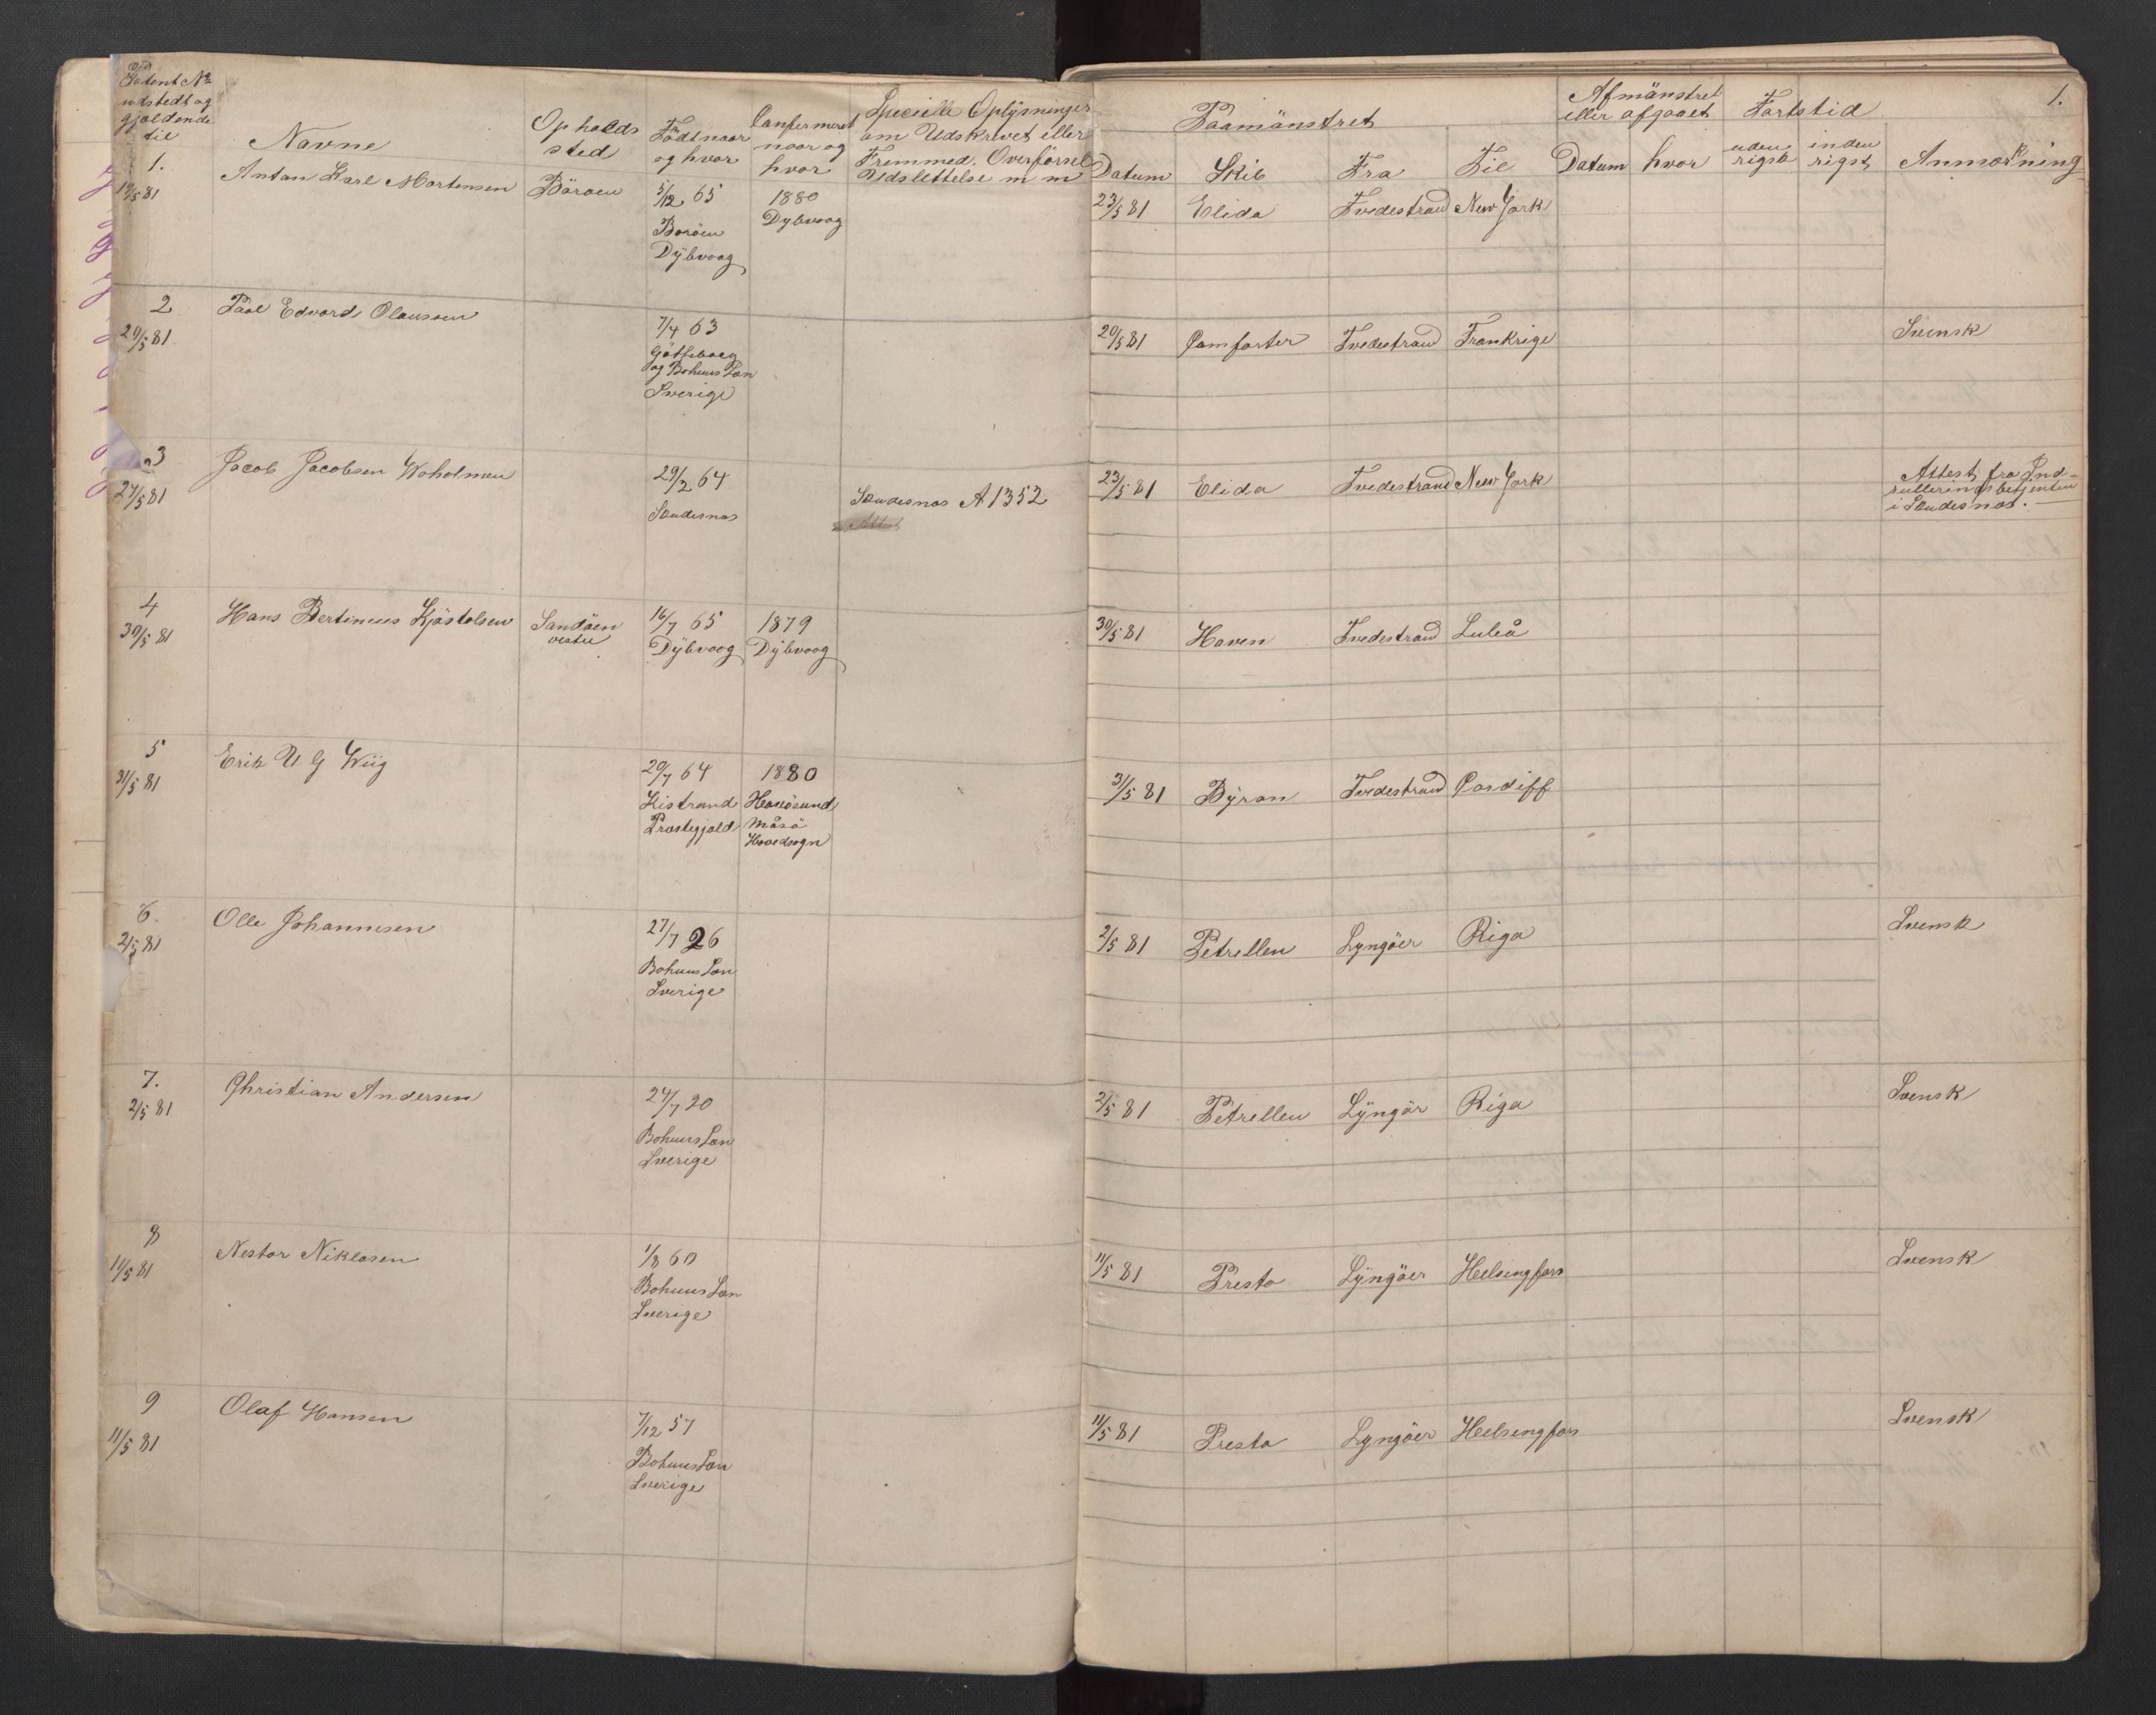 Patent No
udstedt og
gjældende
til
Navne
Opholds
sted
Födt naar
og hvor
Confirmeret
naar og
hvor
Specielle Oplysninger
om Udskrevet eller
Fremmed. Overförsel
Udslettelse m m
1.
Antan Karl Mortensen
Böröen
5/12 65
1880
/5 81
Boröen
Dybvaag
Dÿbvaag
2
Paal Edvard Olausen
20/5 81
7/4 63
Götteborg
og Bohuus Læn
Sverige
3
Jacob Jacobsen Woholmen
24/5 81
29/2 64
Sandesnæs
Sandesnæs A 1352
Attest
4
Hans Bertinius Kjöstolsen
Sandöen
vestre
30/5 81
16/7 65
1879
Dÿbvaag
Dÿbvaag
5
Erik U G Wiig
31/5 81
29/7 64
1880
Kistrand
Havösund
Præstegjæld
Måsö
Hovedsogn
6.
Olle Johannesen
2/5 81
27/7 26
Bohuus Læn
Sverige
7.
Christian Andersen
2/5 81
24/7 20
Bohuus Læn
Sverige
8
Nestor Niklasen
11/5 81
1/8 60
Bohuus Læn
Sverige
9
Olaf Hansen
11/5 81
7/12 57
Bohuus Læn
Sverige
1.
Paamönstret
Afmönstret
eller afgaaet
Fartstid
Datum
Skib
Fra
Til
Datum
hvor
uden
rigsk
inden
rigsk
Anmærkning
23/5 81
Elida
Tvedestrand
New York
20/5 81
Comforter
Tvedestrand
Frankrige
Svensk
23/5 81
Elida
Tvedestrand
New York
Attest fra Ind-
rulleringsbetjenten
i Sandesnæs.
30/5 81
Haven
Tvedestrand
Luleå
31/5 81
Bÿron
Tvedestrand
Cardiff
2/5 81
Petrellen
Lyngöer
Riga
Svensk
2/5 81
Petrellen
Lÿngör
Riga
Svensk
11/5 81
Presto
Lÿngöer
Helsingfors
Svensk
11/5 81
Presto
Lyngöer
Helsingfors
Svensk